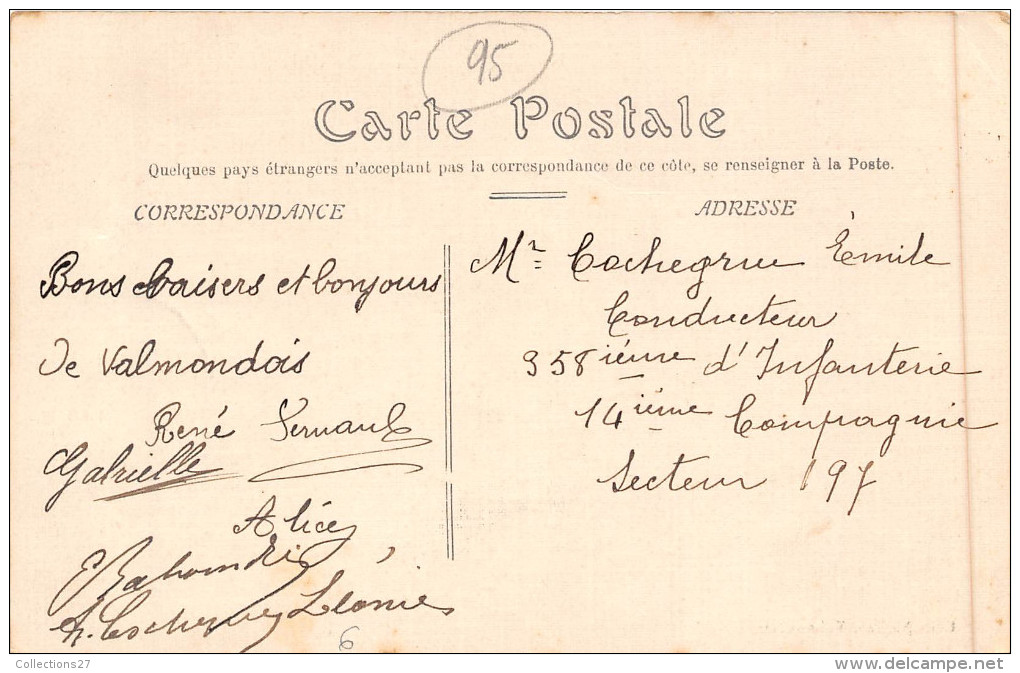 95
Carte Postale
Quelques pays étrangers n'acceptant pas la correspondance de ce côté, se renseigner à la Poste.
CORRESPONDANCE
ADRESSE
Bons baisers et bonjours
De Valmondois
René
Gabrielle
Alice
Léonie
Mr Cochegrue Émile
Conducteur
358ième d'Infanterie
14ième Compagnie
Secteur 197
6
Collections27
delcampe.net